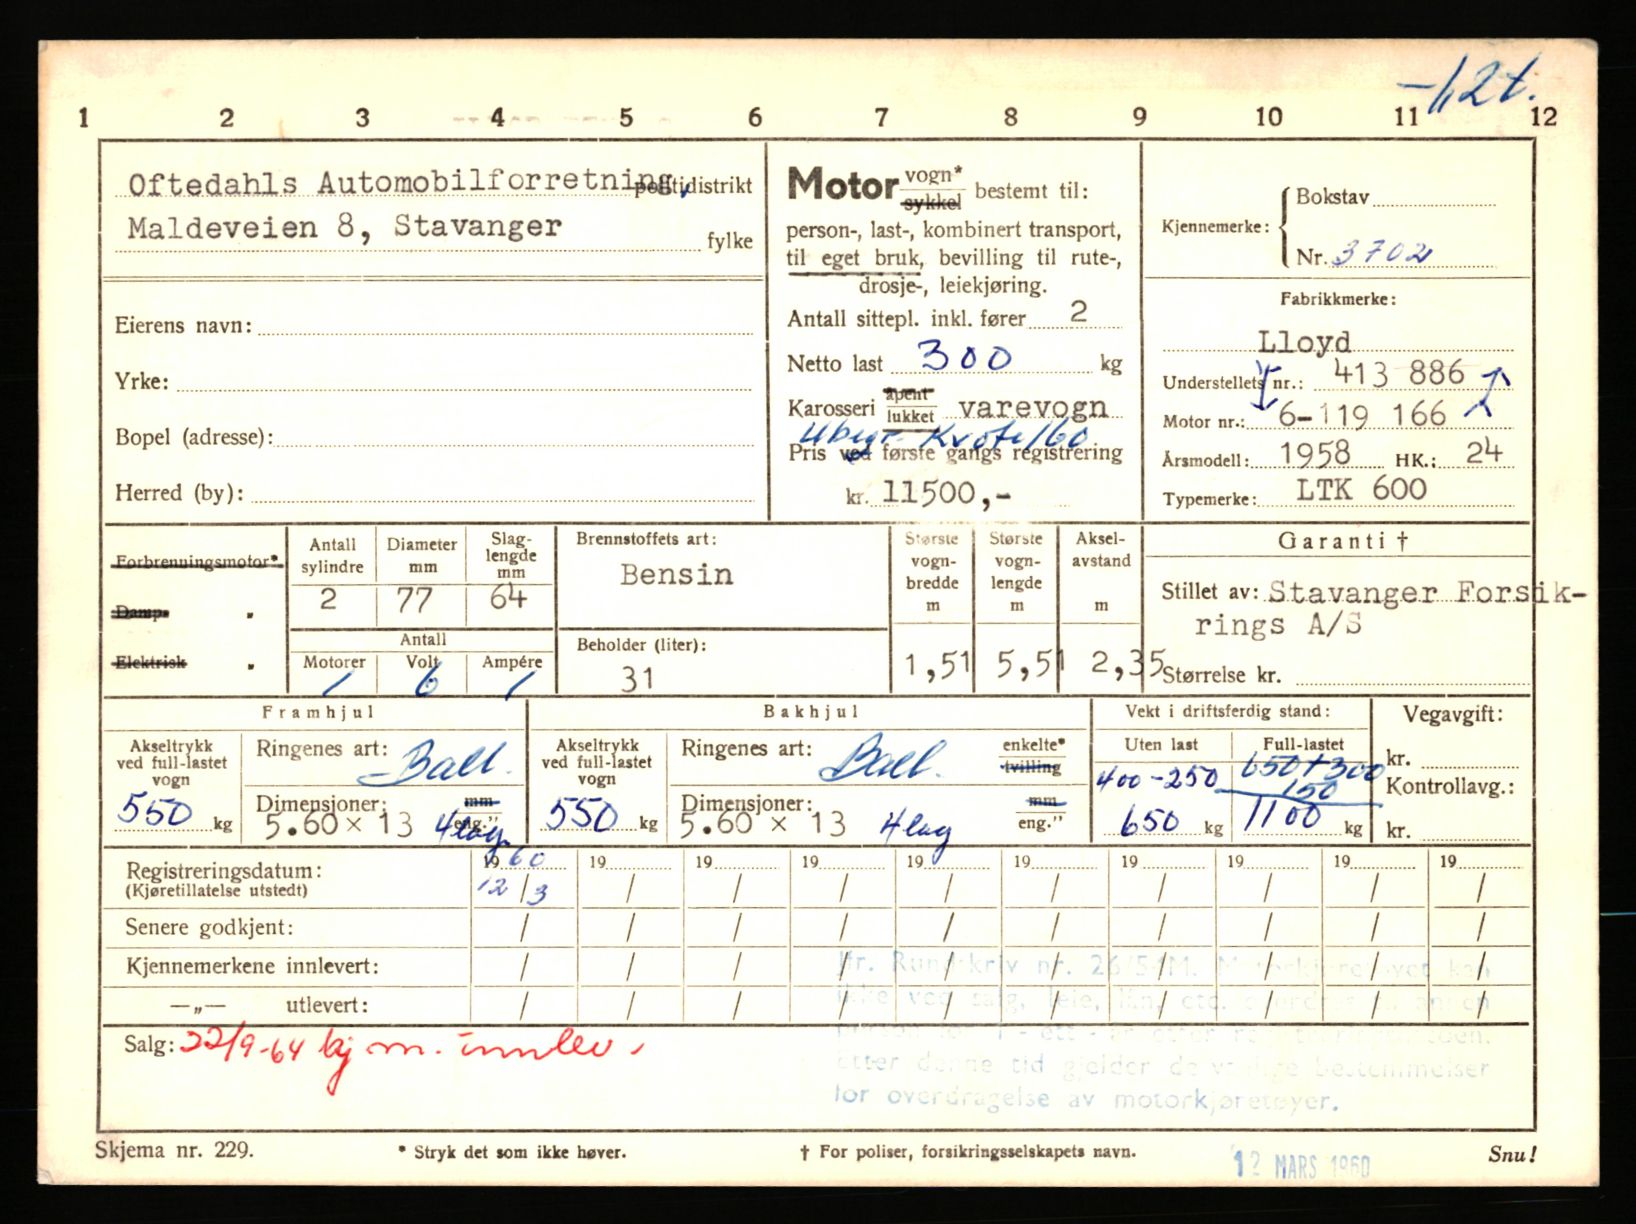 -1,2t.
1 2 3 4 5 6 7 8 9 10 11 12
Oftedahls Automobilforretning, politidistrikt
Maldeveien 8, Stavanger fylke
Eierens navn:
Yrke:
Bopel (adresse):
Herred (by):
Motor vogn* sykkel bestemt til:
person-, last-, kombinert transport,
til eget bruk, bevilling til rute-,
drosje-, leiekjøring.
Antall sittepl. inkl. fører 2
Netto last 300 kg
Karosseri åpent lukket varevogn
Ubegr. Kvote/60
Pris ved første gangs registrering
kr. 11500,-
Kjennemerke: Bokstav
Nr. 3702
Fabrikkmerke:
Lloyd
Understellets nr.: 413 886
Motor nr.: 6-119 166
Årsmodell: 1958 HK.: 24
Typemerke: LTK 600
Forbrenningsmotor*
Damp- "
Elektrisk "
Antall sylindre 2
Diameter mm 77
Slag-lengde mm 64
Antall
Motorer 1 Volt 6 Ampére 1
Brennstoffets art:
Bensin
Beholder (liter):
31
Største vogn-bredde m 1,51
Største vogn-lengde m 5,51
Aksel-avstand m 2,35
Garanti †
Stillet av: Stavanger Forsik-
rings A/S
Størrelse kr.
Framhjul
Akseltrykk ved full-lastet vogn
550 kg
Ringenes art: Ball.
Dimensjoner: mm
5.60 × 13 4 lag eng."
Bakhjul
Akseltrykk ved full-lastet vogn
550 kg
Ringenes art: Ball. enkelte* tvilling
Dimensjoner: mm
5.60 × 13 4 lag eng."
Vekt i driftsferdig stand:
Uten last Full-lastet
400-250 650+300
150
650 kg 1100 kg
Vegavgift:
kr.
Kontrollavg.:
kr.
Registreringsdatum: 1960 19 19 19 19 19 19 19 19 19
(Kjøretillatelse utstedt) 12/3 / / / / / / / / /
Senere godkjent: / / / / / / / / / /
Kjennemerkene innlevert: / / / / / / / / / /
—„— utlevert: / / / / / / / / / /
Hr. Rundskriv nr. 26/54M. Motorkjøretøyet kan
ikke ved salg, leie, lån, etc.
Etter denne tid gjelder de vanlige bestemmelser
for overdragelse av motorkjøretøyer.
Salg: 22/9-64 kj m. innlev.
Skjema nr. 229. * Stryk det som ikke høver. † For poliser, forsikringsselskapets navn. Snu!
12 MARS 1960